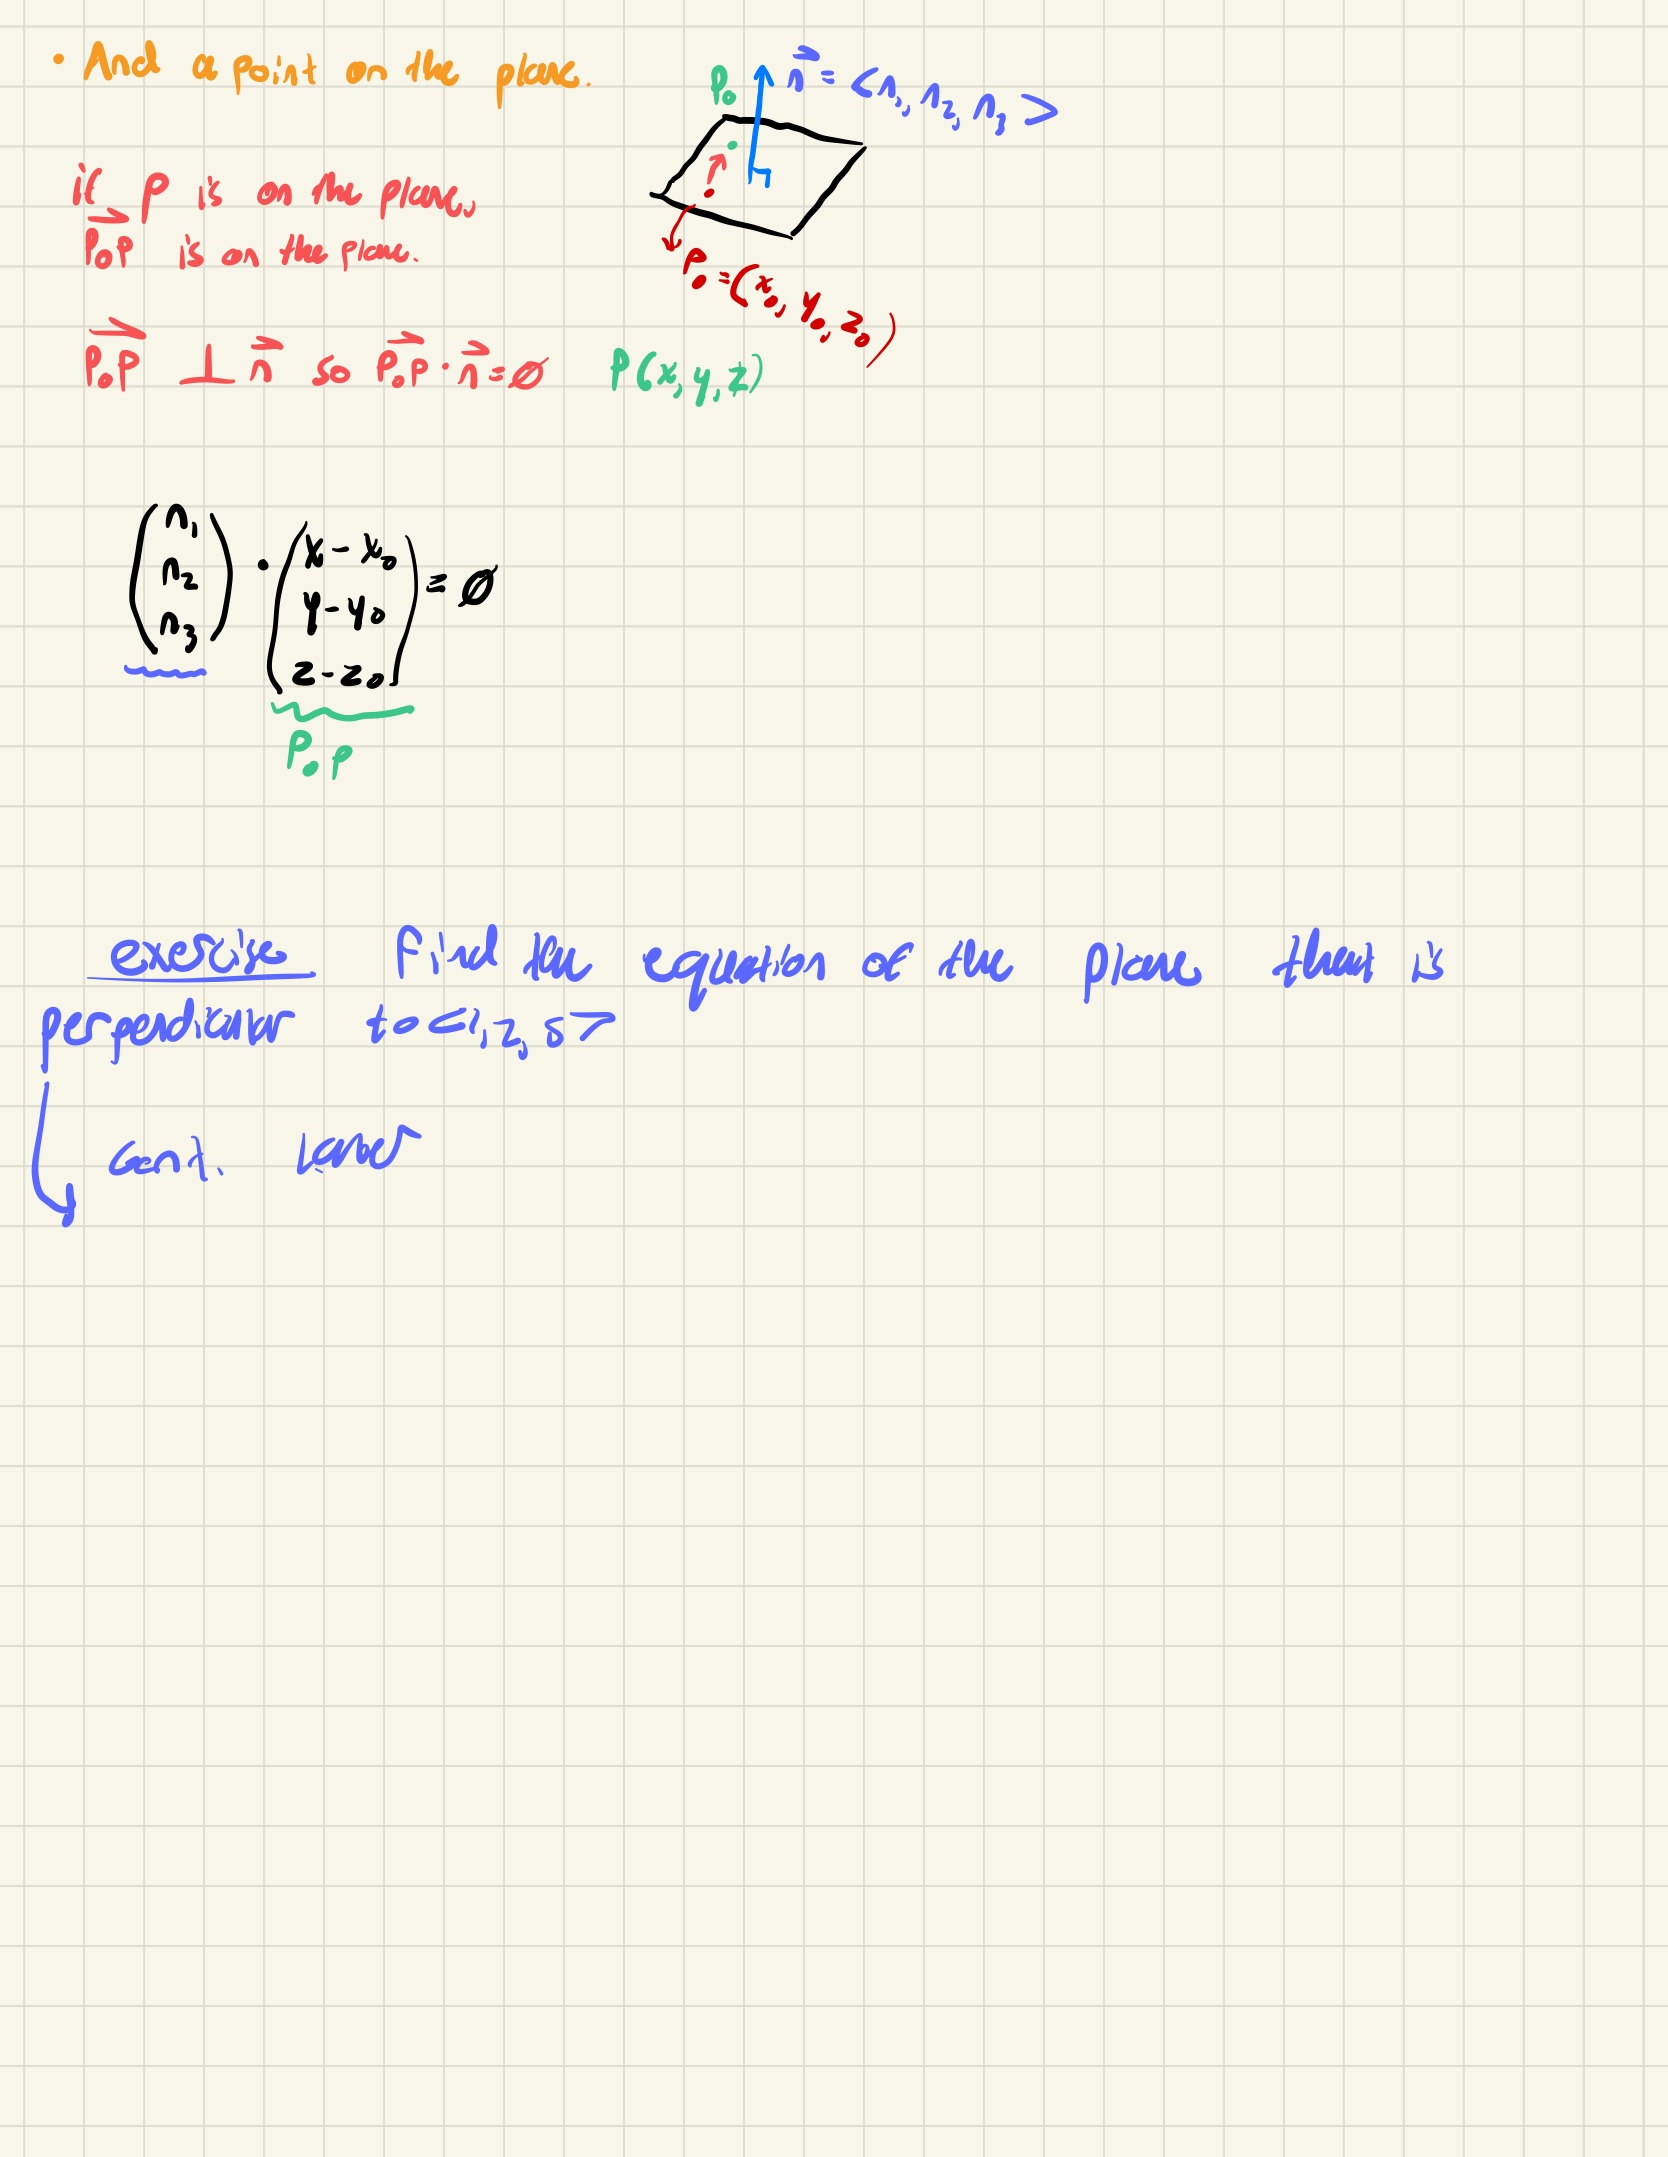 • And a point on the plane.
P₀
n⃗ = <n₁, n₂, n₃>
if P is on the plane,
P₀P is on the plane.
P₀ = (x₀, y₀, z₀)
P₀P ⊥ n⃗ so P₀P · n⃗ = ∅
P(x, y, z)
(n₁ n₂ n₃) · (x - x₀ y - y₀ z - z₀) = ∅
P₀P
exercise Find the equation of the plane that is
perpendicular to <1, 2, 5>
cont. later